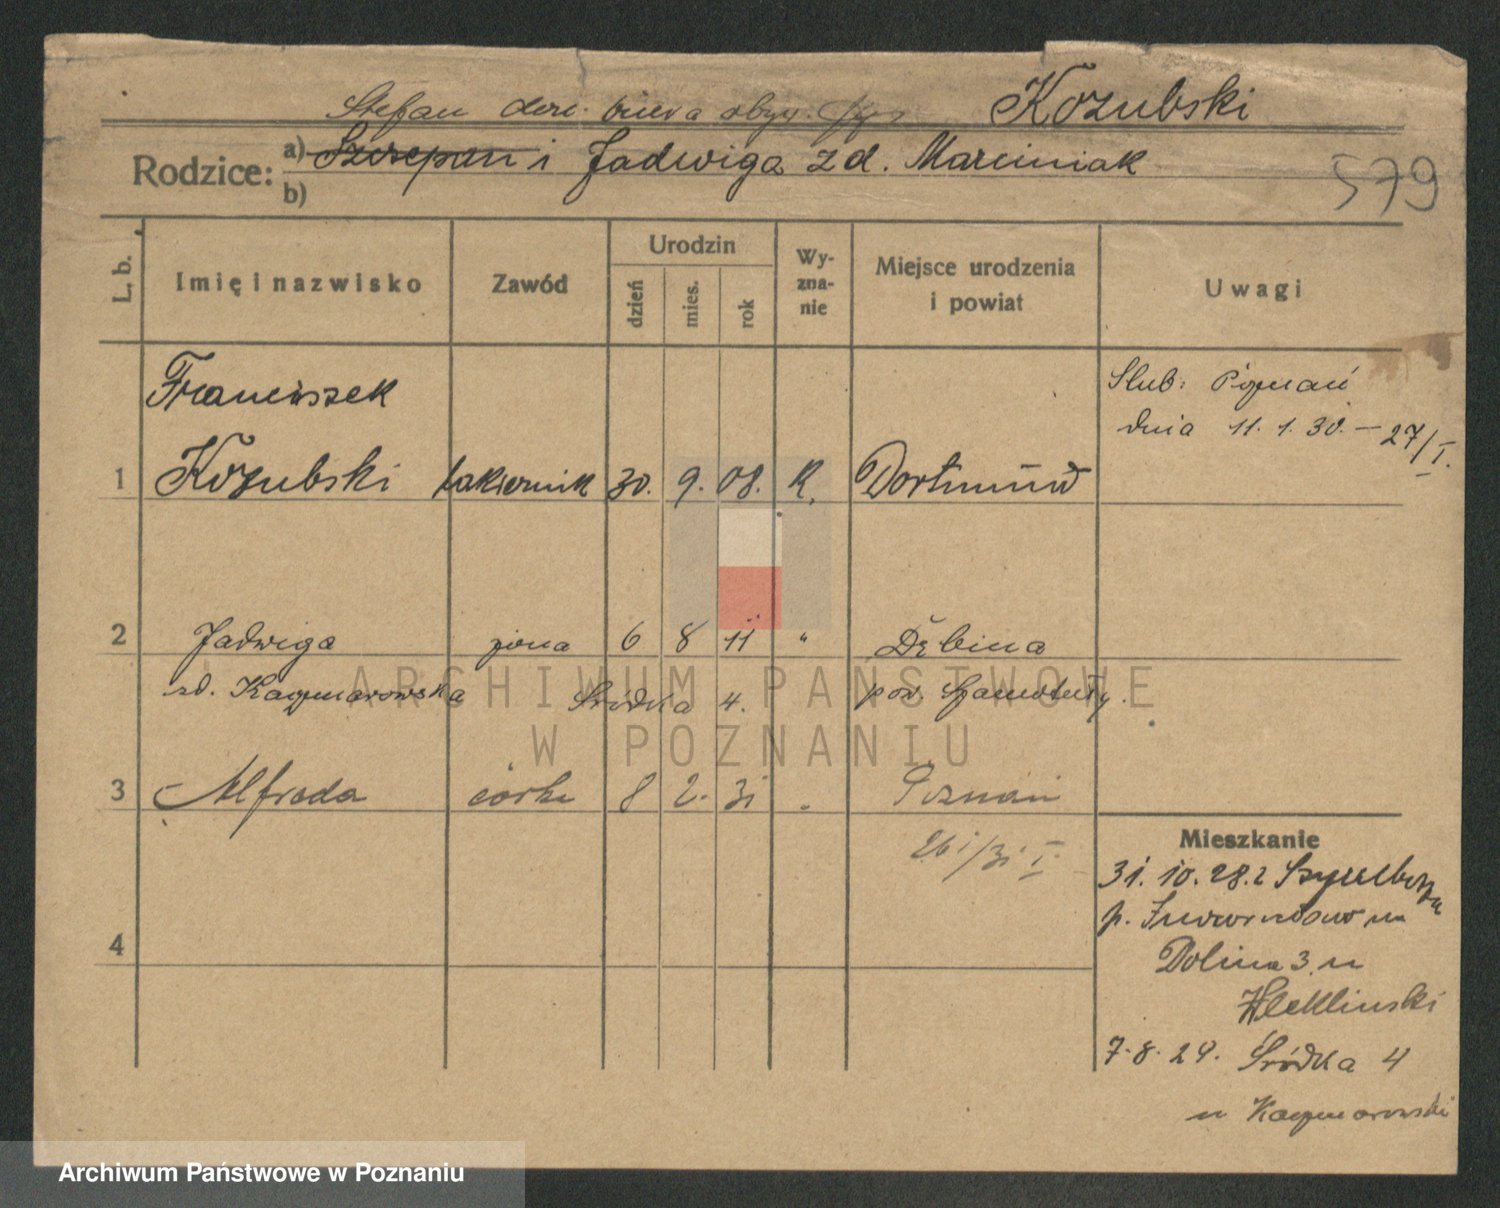 Stefan Kozubski
Rodzice: a) Szczepan i Jadwiga z d. Marciniak
b)
579
L. b. Imię i nazwisko Zawód Urodzin dzień mies. rok Wy-zna-nie Miejsce urodzenia i powiat Uwagi
Franciszek
Ślub: Poznań
dnia 11. 1. 30. – 27/I.
1 Kozubski lakiernik 30. 9. 08. R. Dortmund
2 Jadwiga żona 6 8 11 " Dębina
zd. Kaczmarowska Śródka 4. pow. Szamotuły.
3 Alfreda córka 8 2. 31 " Poznań
31 I.
4
Mieszkanie
31. 10. 28. z
p.
Dolina 3. u
7. 8. 29. Śródka 4
u Kaczmarowski
ARCHIWUM PAŃSTWOWE
W POZNANIU
Archiwum Państwowe w Poznaniu